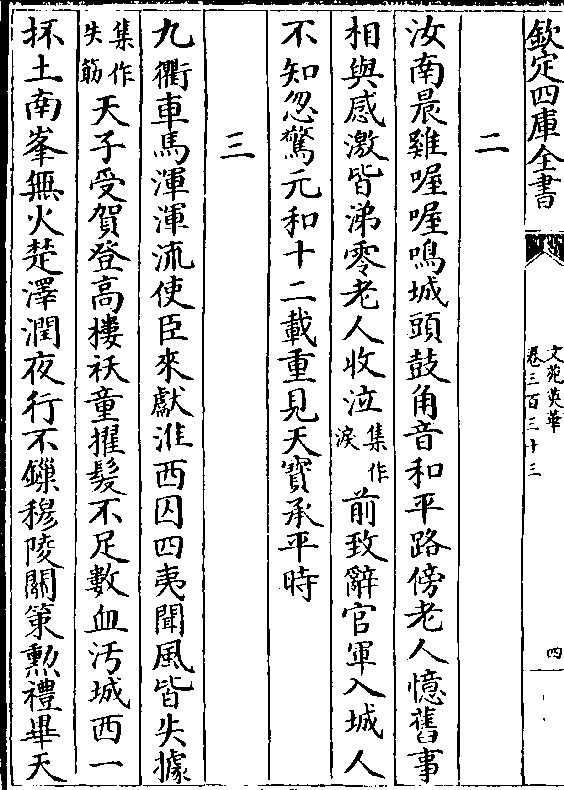 欽定四庫全書
文苑英華
卷三百三十三
四
二
汝南晨雞喔喔鳴城頭鼓角音和平路傍老人憶舊事
相與感激皆涕零老人收泣集作淚前致辭官軍入城人
不知忽驚元和十二載重見天寶承平時
三
九衢車馬渾渾流使臣來獻淮西囚四夷聞風皆失據
集作失筯天子受賀登高樓袄童擢髮不足數血汚城西一
抔土南峯無火楚澤潤夜行不鏁穆陵關策勲禮畢天